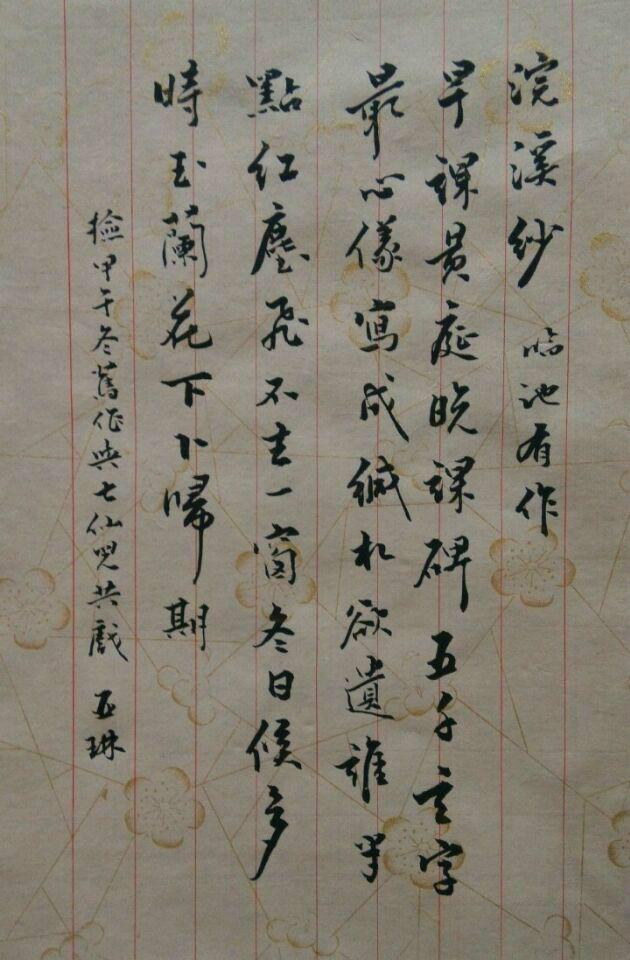 浣溪紗 临池有作
早課黃庭晚課碑五千言字
最心儀寫成緘札欲遺誰半
點紅塵飛不去一窗冬日候多
時玉蘭花下卜歸期
撿甲午冬舊作與七仙兒共戲 亚琳